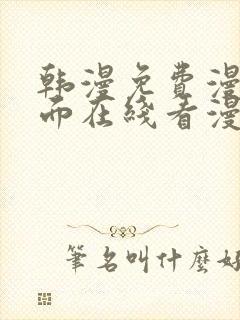 韩漫免费漫
而在线看漫
筆名叫什麼好